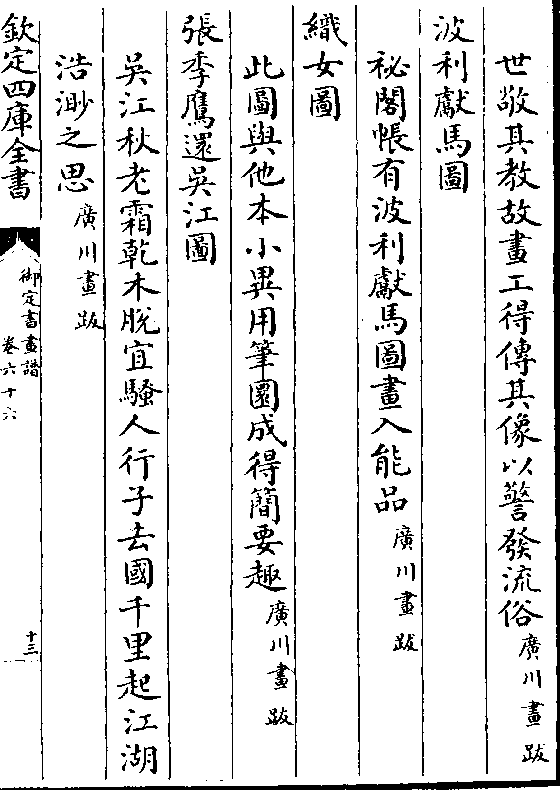 世敬其教故畫工得傳其像以警發流俗廣川畫跋
波利獻馬圖
祕閣帳有波利獻馬圖畫入能品廣川畫跋
織女圖
此圖與他本小異用筆圜成得簡要趣廣川畫跋
張季鷹還吳江圖
吳江秋老霜乾木脫宜騷人行子去國千里起江湖
浩渺之思廣川畫跋
欽定四庫全書
御定書畫譜
卷六十六
十三